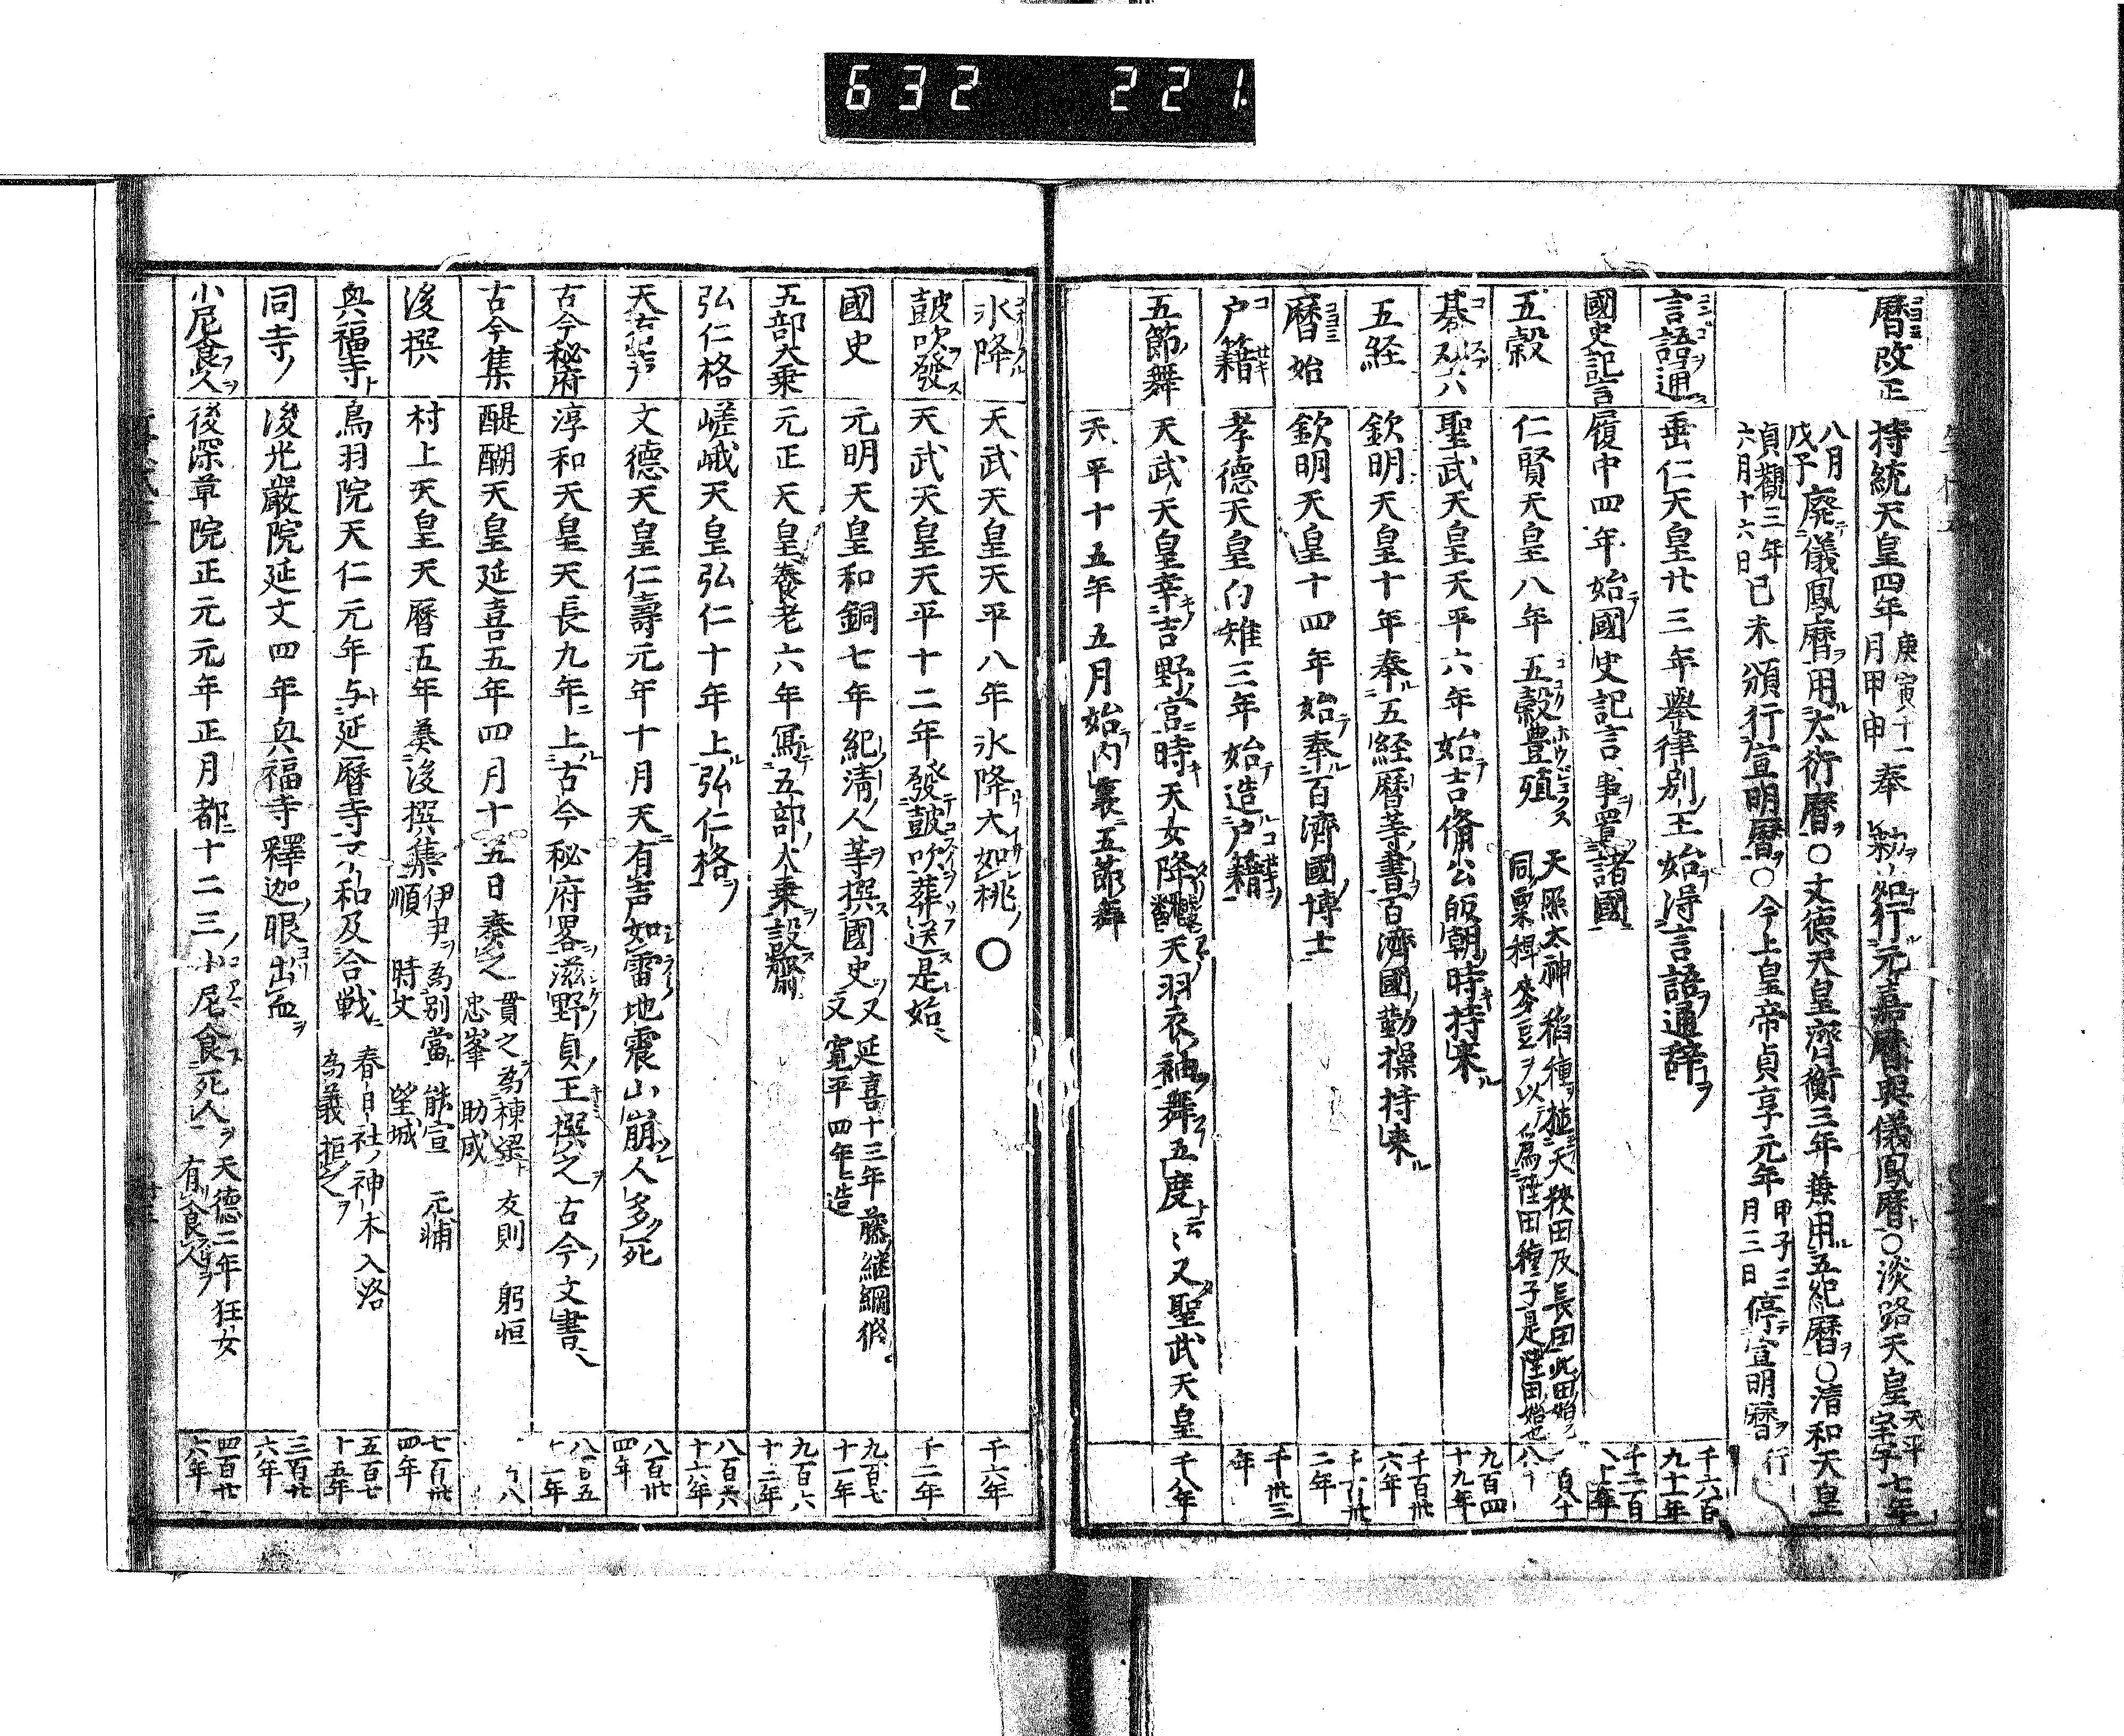 632 221.
暦改正 持統天皇四年庚寅十一月甲申奉勅始行元嘉暦與儀鳳暦○淡路天皇天平宝字七年
八月戊子廃儀鳳暦用大衍暦○文徳天皇齊衡三年兼用五紀暦○清和天皇
貞觀三年六月十六日己未頒行宣明暦○今上皇帝貞享元年甲子三月三日停宣明暦行
言語通 垂仁天皇廿三年舉律別王始淂言語通辞 千六百九十一年
國史記言 履中四年始國史記言事置諸國 千二百八十年
五穀 仁賢天皇八年五穀豊殖 天照太神稲種植天狹田及長田此田始也
同粟稗麥豆ヲ以為陸田種子是陸田始也
碁双六 聖武天皇天平六年始吉備公皈朝時持来 九百四十九年
五経 欽明天皇十年奉五経暦等書百濟國勤操持来 千百卅六年
暦始 欽明天皇十四年始奉百濟國博士
户籍 孝德天皇白雉三年始造户籍 千卅三年
五節舞 天武天皇幸吉野宮時天女降飜天羽衣袖舞五度 又聖武天皇 千八年
天平十五年五月始内裏五節舞
氷降 天武天皇天平八年氷降大如桃○ 千六年
鼓吹發 天武天皇天平十二年發鼓吹葬送是始 千二年
國史 元明天皇和銅七年紀清人等撰國史 又延喜十三年藤継綱修
又寛平四年造 九百七十一年
五部大乗 元正天皇養老六年寫五部大乗設齋 九百六十二年
弘仁格 嵯峨天皇弘仁十年上弘仁格 八百六十六年
文徳天皇仁壽元年十月天有声如雷地震山崩人多死 八百卅四年
古今秘府 淳和天皇天長九年上古今秘府畧滋野貞王撰之古今文書
古今集 醍醐天皇延喜五年四月十五日奏之 貫之為棟梁 友則 躬恒
忠峯 助成
後撰 村上天皇天暦五年奏後撰集 伊尹為別當 能宣 元輔
順 時文 望城 七百卅四年
興福寺 鳥羽院天仁元年与延暦寺不和及合戦 春日社神木入洛
為義拒之 五百七十五年
同寺 後光嚴院延文四年興福寺釋迦眼出血 三百廿六年
小尼食人 後深草院正元元年正月都十二三小尼食死人 天德二年狂女
有食人 四百廿六年